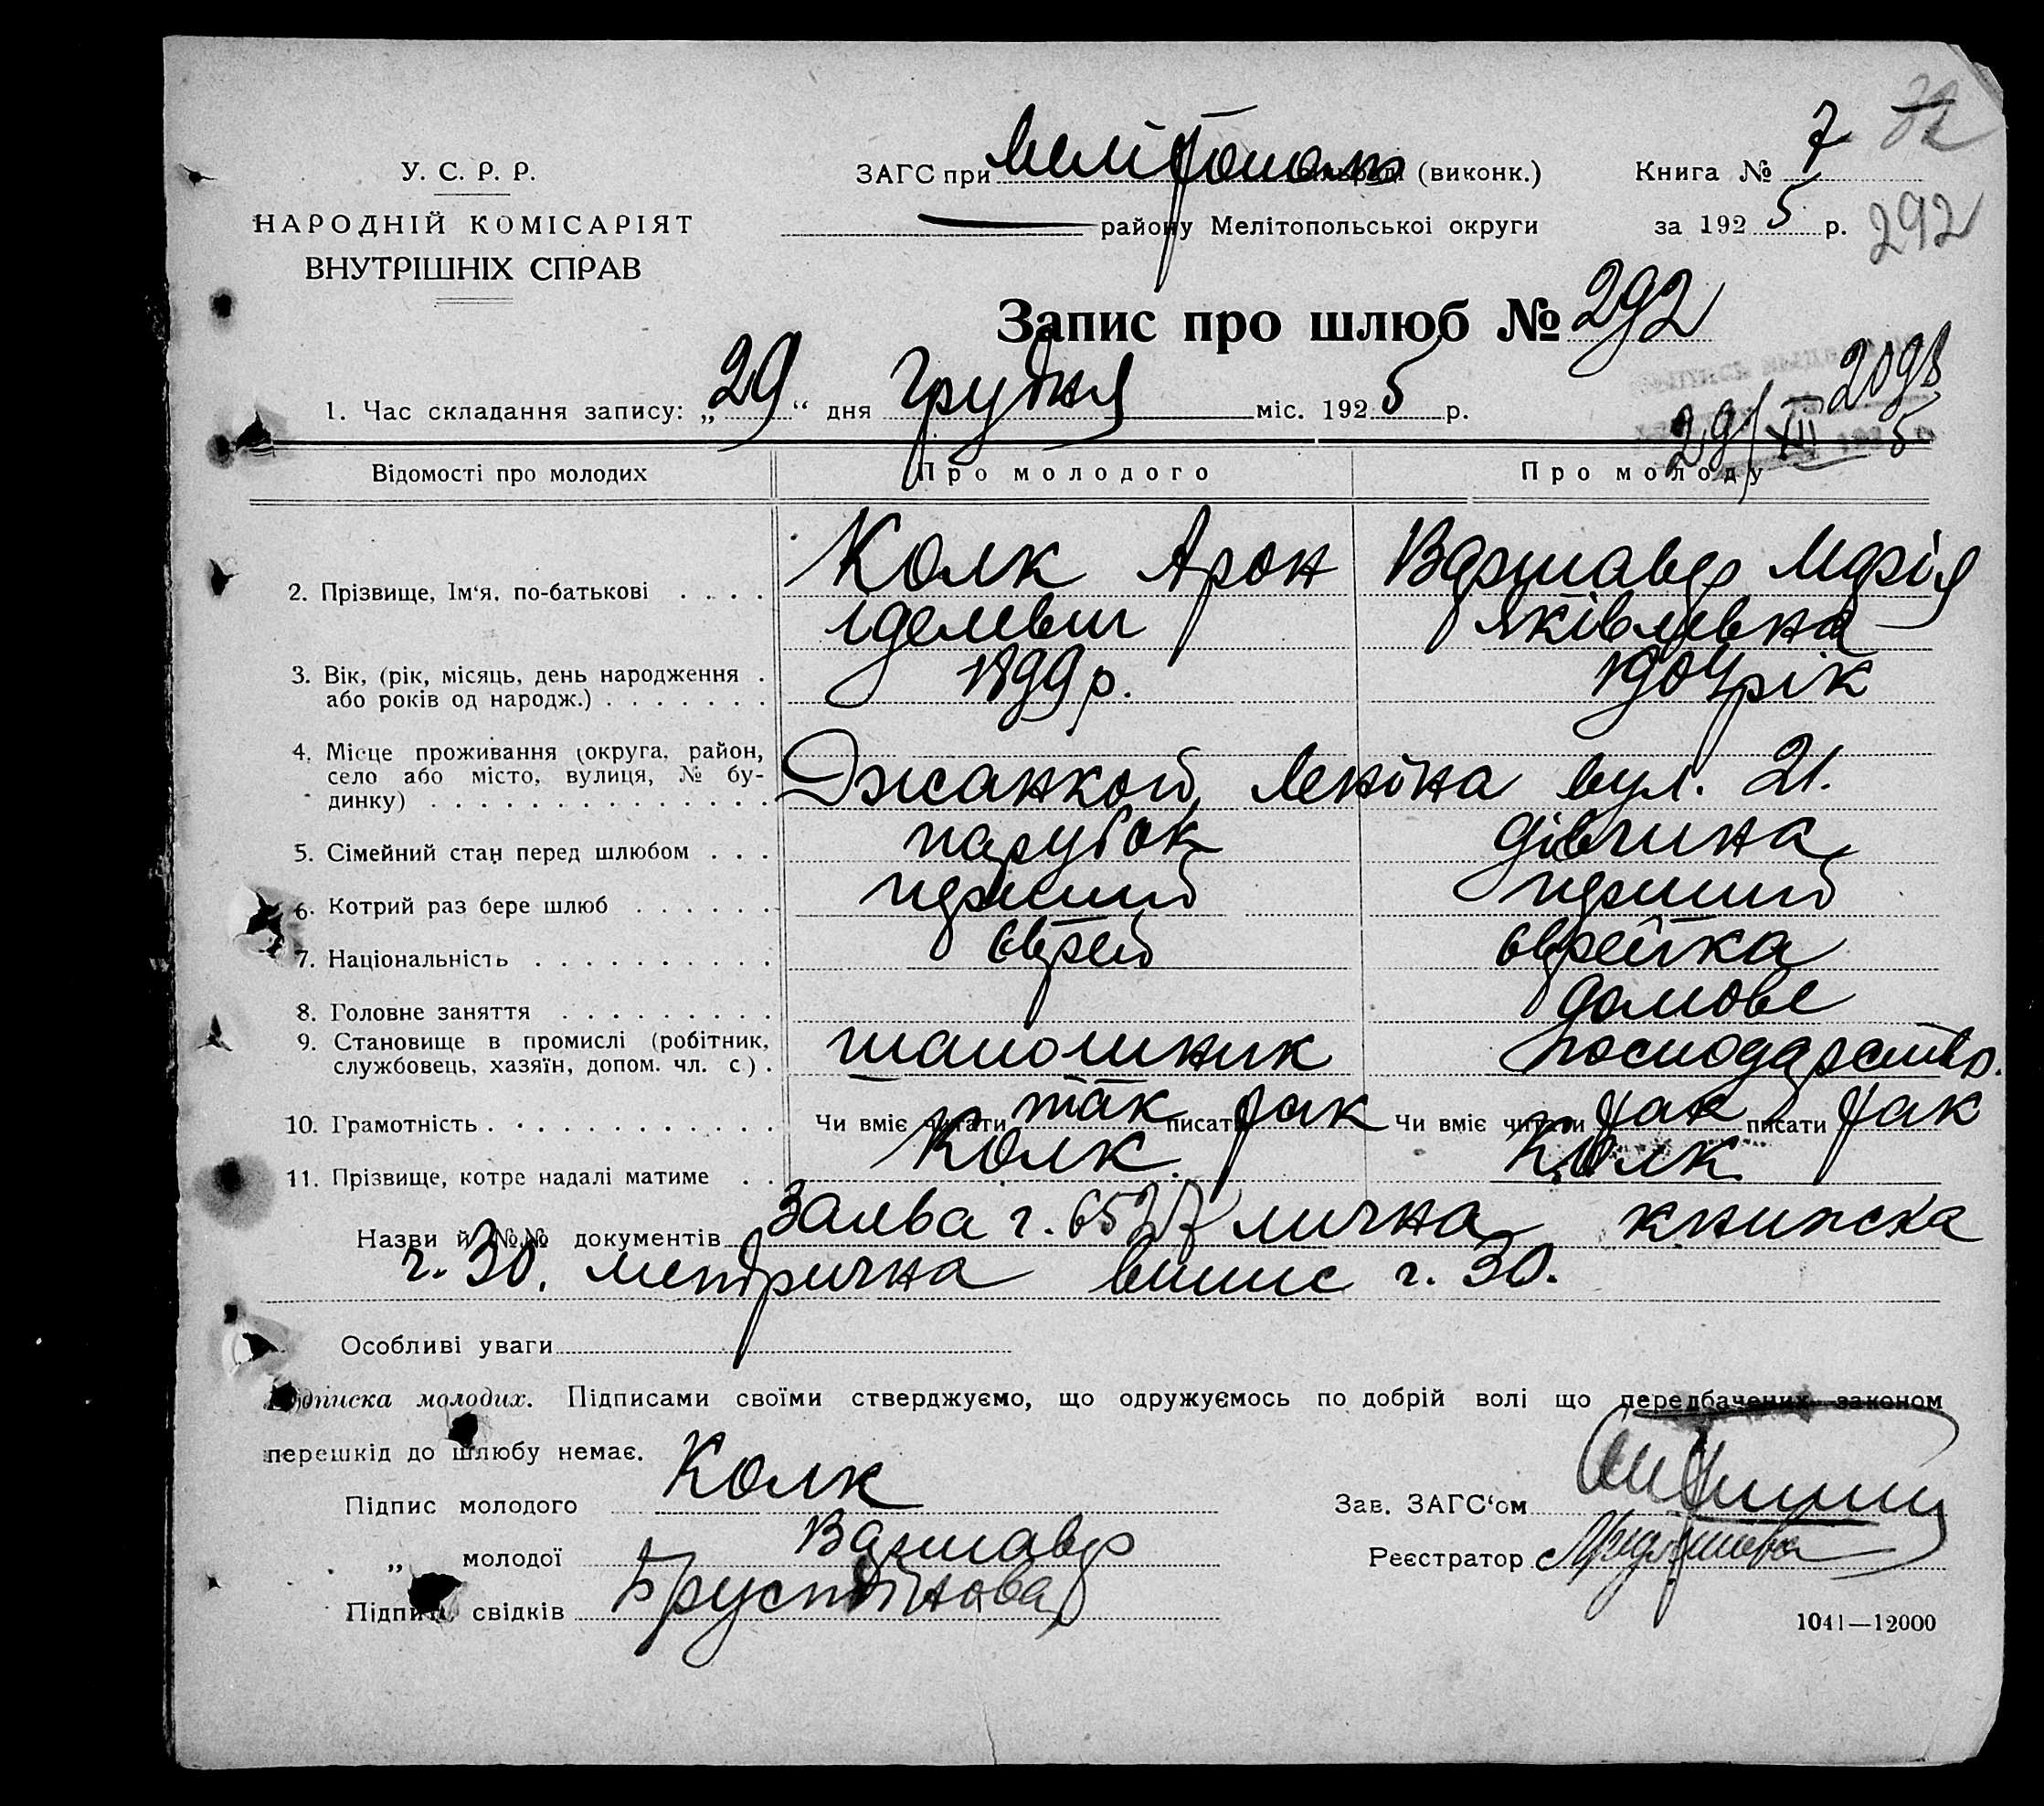 32
У. С. Р. Р.
НАРОДНІЙ КОМІСАРІЯТ
ВНУТРІШНІХ СПРАВ
ЗАГС при Мелітополь (виконк.)
району Мелітопольської округи
Книга № 7
за 1925 р.
292
Запис про шлюб № 292
1. Час складання запису: „29“ дня Грудня міс. 1925 р.
29/XII 5
Відомості про молодих
Про молодого
Про молоду
2. Прізвище, Ім‘я, по-батькові
Колк Арон
Іделевич
Варшавер Марія
Яківлевна
3. Вік, (рік, місяць, день народження
або років од народж.)
1899 р.
1904 рік
4. Місце проживання (округа, район,
село або місто, вулиця, № бу-
динку)
Джанкой, Леніна вул. 21.
5. Сімейний стан перед шлюбом
парубок
дівчина
6. Котрий раз бере шлюб
перший
перший
7. Національність
Єврей
Єврейка
8. Головне заняття
домове
9. Становище в промислі (робітник,
службовець, хазяїн, допом. чл. с.)
шапошник
господарство.
10. Грамотність
Чи вміє читати так писати так
Чи вміє читати так писати так
11. Прізвище, котре надалі матиме
Колк
Колк
Назви й №№ документів Заява г. 6527 лична книжка
г. 30. метрична випис г. 30.
Особливі уваги
Підписка молодих. Підписами своїми стверджуємо, що одружуємось по добрій волі що передбачених законом
перешкід до шлюбу немає.
Підпис молодого Колк
„ молодої Варшавер
Підпис свідків
Зав. ЗАГС‘ом
Реєстратор
1041—12000